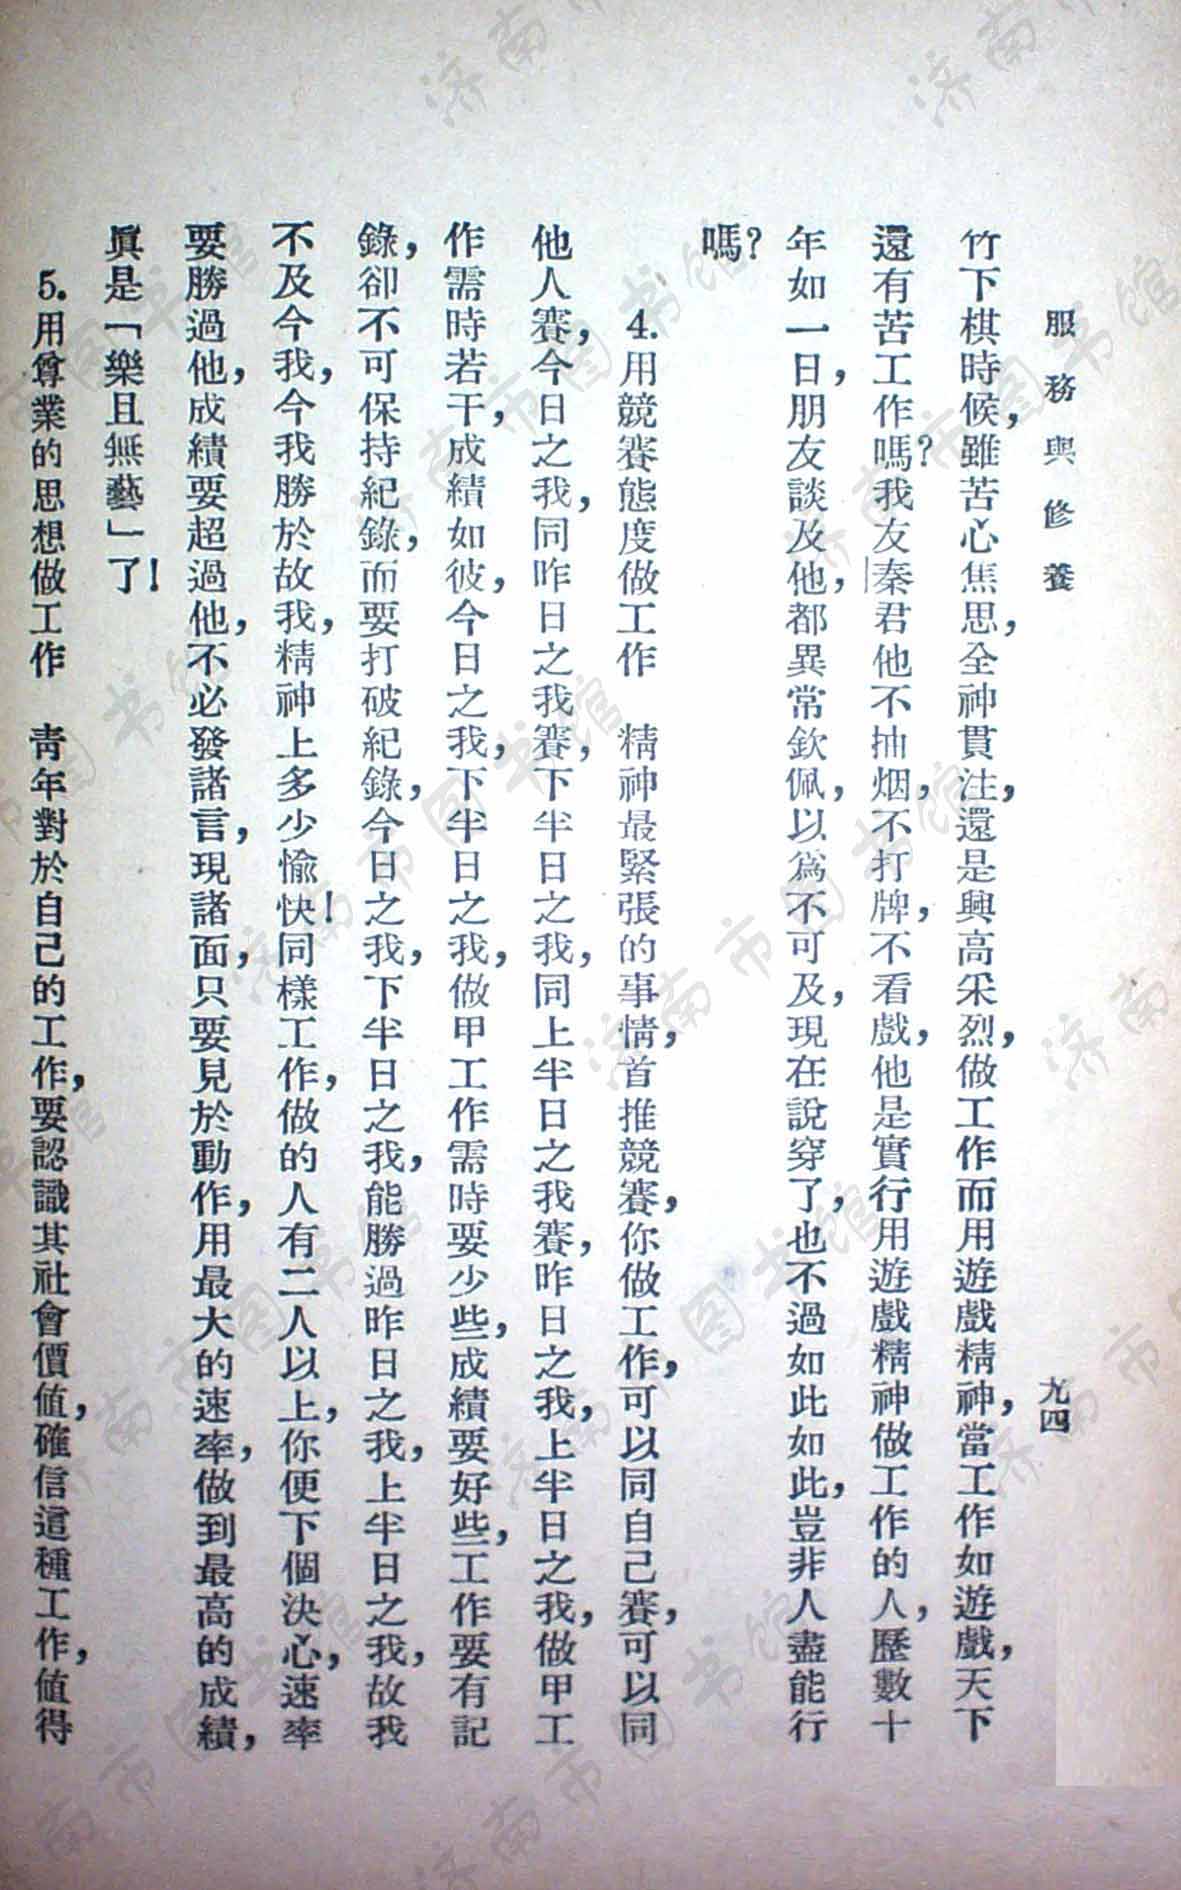 服務與修養
九四
竹下棋時候，雖苦心焦思，全神貫注，還是興高采烈，做工作而用遊戲精神，當工作如遊戲，天下
還有苦工作嗎？我友秦君他不抽烟，不打牌，不看戲，他是實行用遊戲精神做工作的人，歷數十
年如一日，朋友談及他，都異常欽佩，以爲不可及，現在說穿了，也不過如此如此，豈非人盡能行
嗎？
4.用競賽態度做工作　精神最緊張的事情，首推競賽，你做工作，可以同自己賽，可以同
他人賽，今日之我，同昨日之我賽，下半日之我，同上半日之我賽，昨日之我，上半日之我，做甲工
作需時若干，成績如彼，今日之我，下半日之我，做甲工作需時要少些，成績要好些，工作要有記
錄，卻不可保持紀錄，而要打破紀錄，今日之我，下半日之我，能勝過昨日之我，上半日之我，故我
不及今我，今我勝於故我，精神上多少愉快！同樣工作，做的人有二人以上，你便下個決心，速率
要勝過他，成績要超過他，不必發諸言，現諸面，只要見於動作，用最大的速率，做到最高的成績，
眞是「樂且無藝」了！
5.用尊業的思想做工作　青年對於自己的工作，要認識其社會價値，確信這種工作，値得
济南市图书馆